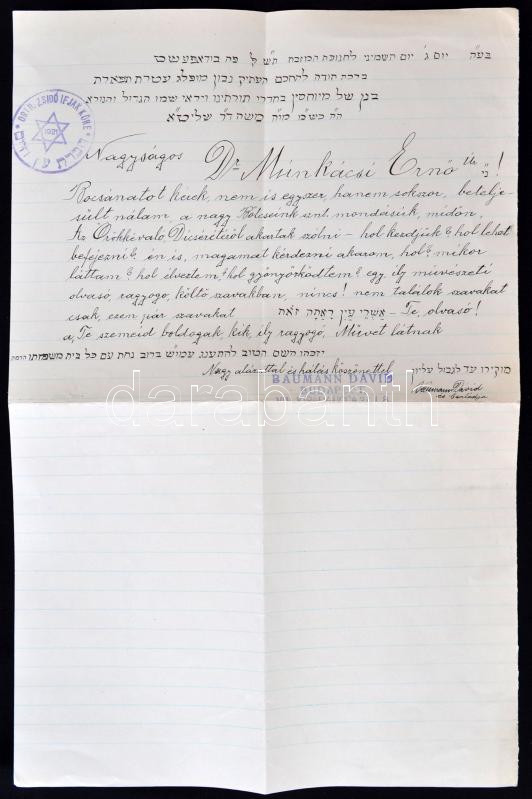 בעה״ יום ג׳ יום השמיני לחנוכת המזבח תש״ל פה בודאפעשט
ברכת תודה להחכם העתיק נבון מופלג עטרת תפארת
בנן של מיוחסין בחדרי תורתינו ויראי שמו הגדול והנורא
ה״ה כש״מ מו״ה משה ד״ר שליט״א
ORTH. ZSIDÓ IFJAK KÖRE
1921
Nagyságos Dr Munkácsi Ernő Úr נ״י!
Bocsánatot kérek, nem is egyszer, hanem sokszor, betelje-
sült nálam, a nagy Bölcseink sznt. mondásuk, midőn,
Az Örökkévaló Dicséretéről akartak szólni – hol kezdjük? hol lehet
befejezni? én is, magamat kérdezni akarom, hol? mikor
láttam? hol élveztem? hol gyönyörködtem? egy ily művészeti
olvasó, ragyogó, költő szavakban, nincs! nem találok szavakat
csak, ezen pár szavakat אשרי עין ראתה זאת – Te, olvasó!
a, Te szemeid boldogak, kik, ily ragyogó, Művet látnak
יזכהו השם הטוב להתענג עמו״ש ברוב נחת עם כל בית משפחתו
Nagy alázattal és hálás köszönettel מוקירו עד לגבול עליון
BAUMANN DÁVID
BUDAPEST
Baumann Dávid
és családja
darabanth